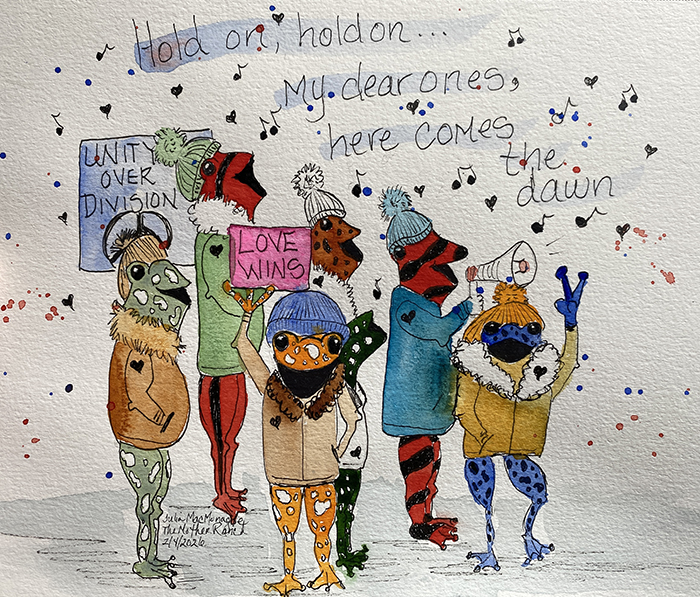 Hold on, hold on...
My dear ones,
here comes
the
dawn
UNITY
OVER
DIVISION
LOVE
WINS
Julia MacMonagle
The Mother Ranch
2/4/2026